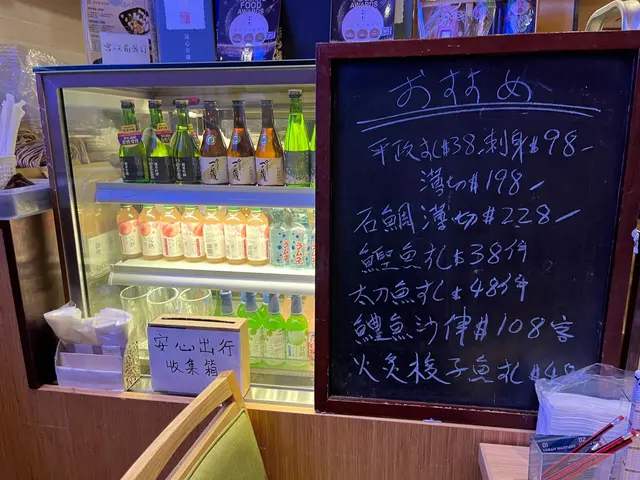 FOOD
AWARDS
AWARDS
おすすめ
平政丸$38 刺身$98
薄切$198
石鯛薄切$228
鰹魚丸$38件
太刀魚丸$48件
鱧魚沙律$108客
火炙梭子魚丸$48
安心出行
收集箱